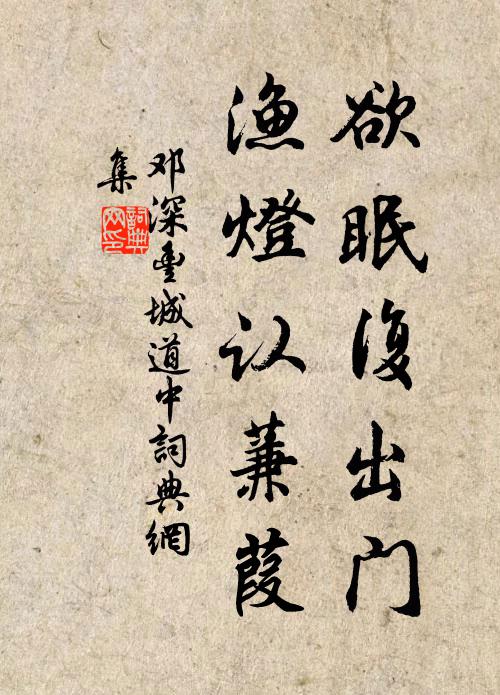 欲眠復出门
漁燈认蒹葭
邓深豊城道中詞典網
集
詞典
网印